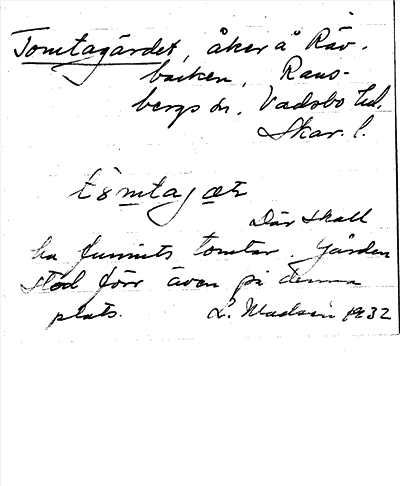 Tomtagärdet, åker å Räv-
backen, Rans-
bergs sn. Vadsbo hd.
Skar. l.
Där skall
ha funnits tomtar. Gården
stod förr även på denna
plats. L. Madsén 1932